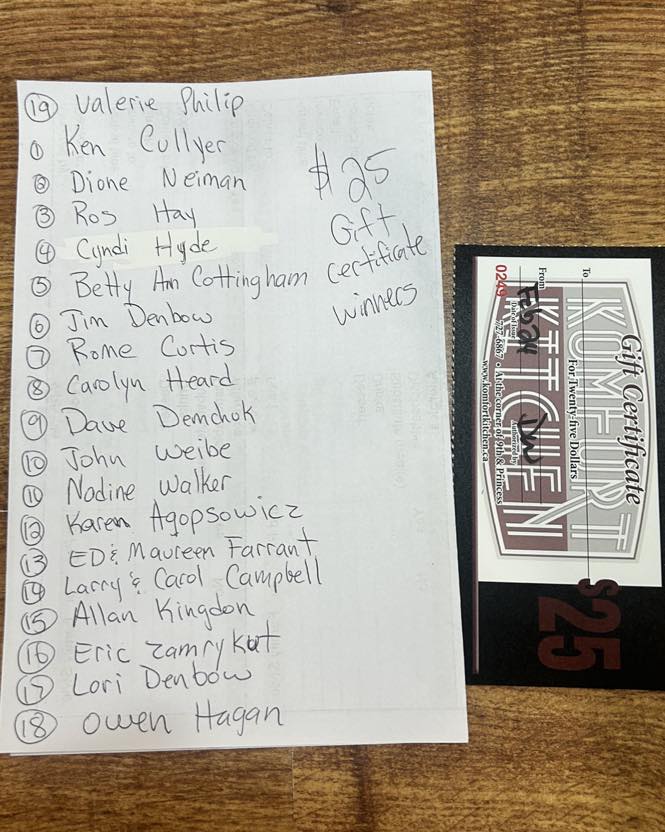 19 Valerie Philip
1 Ken Cullyer
2 Dione Neiman
3 Ros Hay
4 Cyndi Hyde
5 Betty Ann Cottingham
6 Jim Denbow
7 Rome Curtis
8 Carolyn Heard
9 Dave Demchuk
10 John Weibe
11 Nadine Walker
12 Karen Agopsowicz
13 ED & Maureen Farrant
14 Larry & Carol Campbell
15 Allan Kingdon
16 Eric Zamrykut
17 Lori Denbow
18 Owen Hagan
$25
Gift
Certificate
winners
Gift Certificate
KOMFORT
KITCHEN
For Twenty-five Dollars
To
From
Feb 24
Date of Issue
Authorized by
727-6867 • At the corner of 9th & Princess
www.komfortkitchen.ca
0249
$25